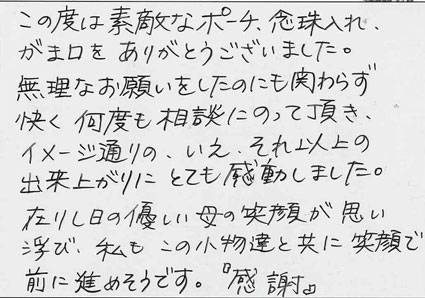 この度は素敵なポーチ、念珠入れ、
がま口を ありがとうございました。
無理なお願いをしたのにも関わらず
快く 何度も 相談にのって頂き、
イメージ通りの、いえ、それ以上の
出来上がりに とても 感動しました。
在りし日の優しい 母の笑顔が 思い
浮び、私も この小物達と共に 笑顔で
前に進めそうです。『感謝』